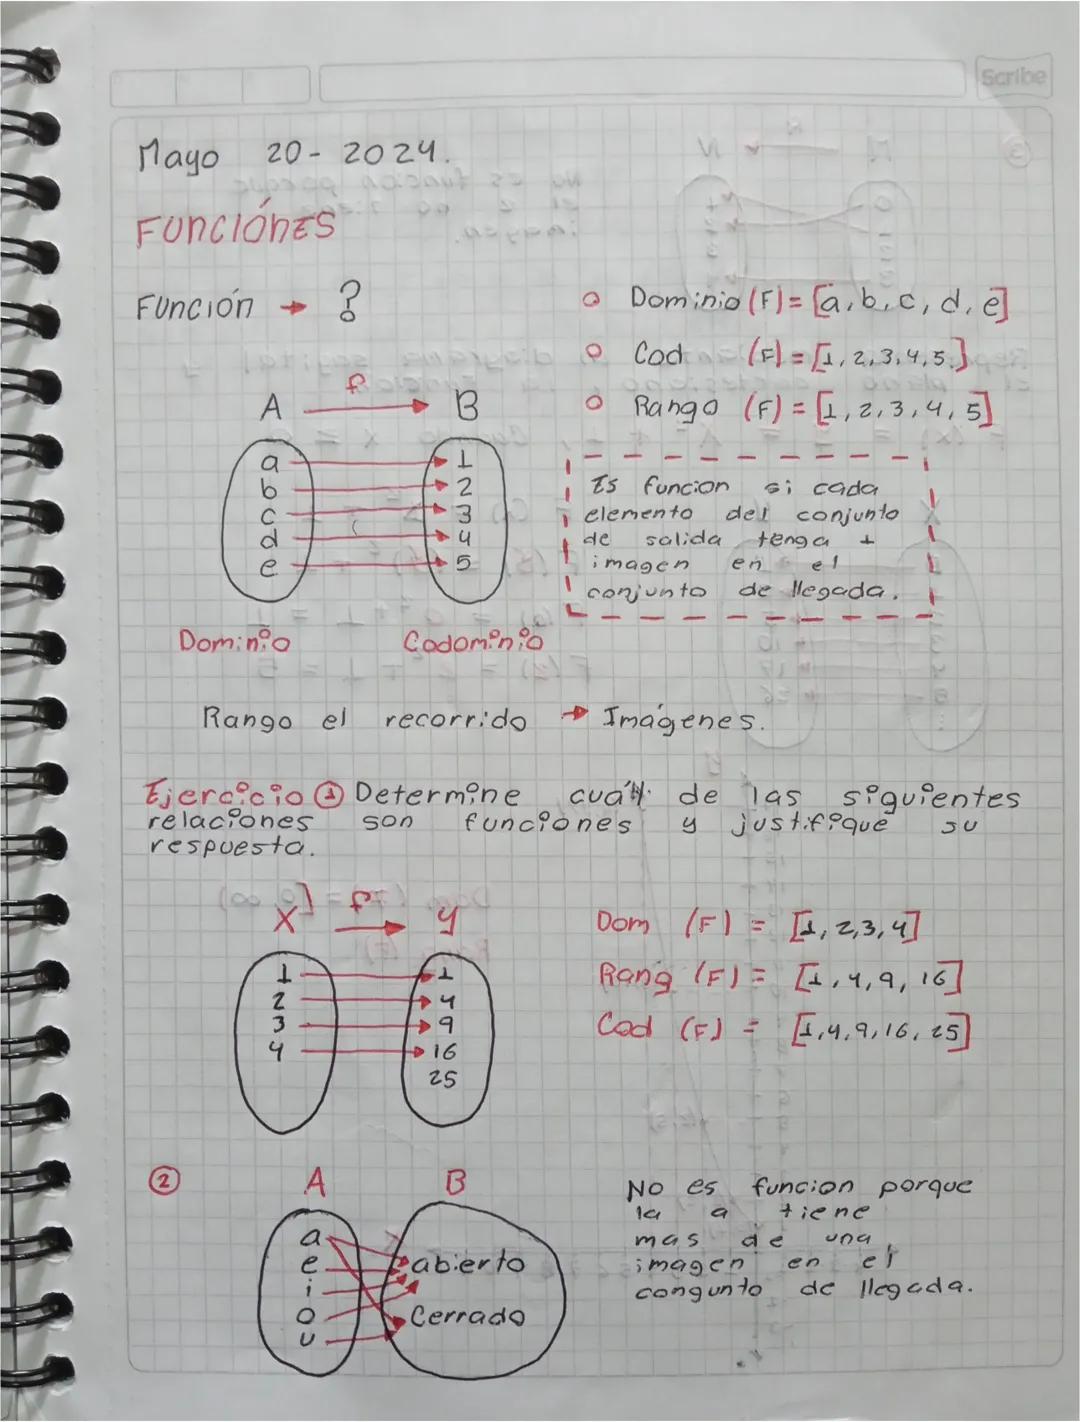 Scribe
Mayo 20-2024.
FUnCIÓnES
FUnCIÓn → ?
○ Dominio (F) = [a, b, c, d, e]
○ Cod (F) = [1, 2, 3, 4, 5]
○ Rango (F) = [1, 2, 3, 4, 5]
f
A → B
a 1
b 2
c 3
d 4
e 5
Dominio Codominio
Es funcion si cada
elemento del conjunto
de salida tenga 1
imagen en el
conjunto de llegada.
Rango el recorrido → Imágenes.
Ejercicio ① Determine cuál de las siguientes
relaciones son funciones y justifique su
respuesta.
f
X → y
1 1
2 4
3 9
4 16
25
Dom (F) = [1, 2, 3, 4]
Rang (F) = [1, 4, 9, 16]
Cod (F) = [1, 4, 9, 16, 25]
② A B
a
e abierto
i
o Cerrado
u
No es funcion porque
la a tiene
mas de una
imagen en el
congunto de llegada.